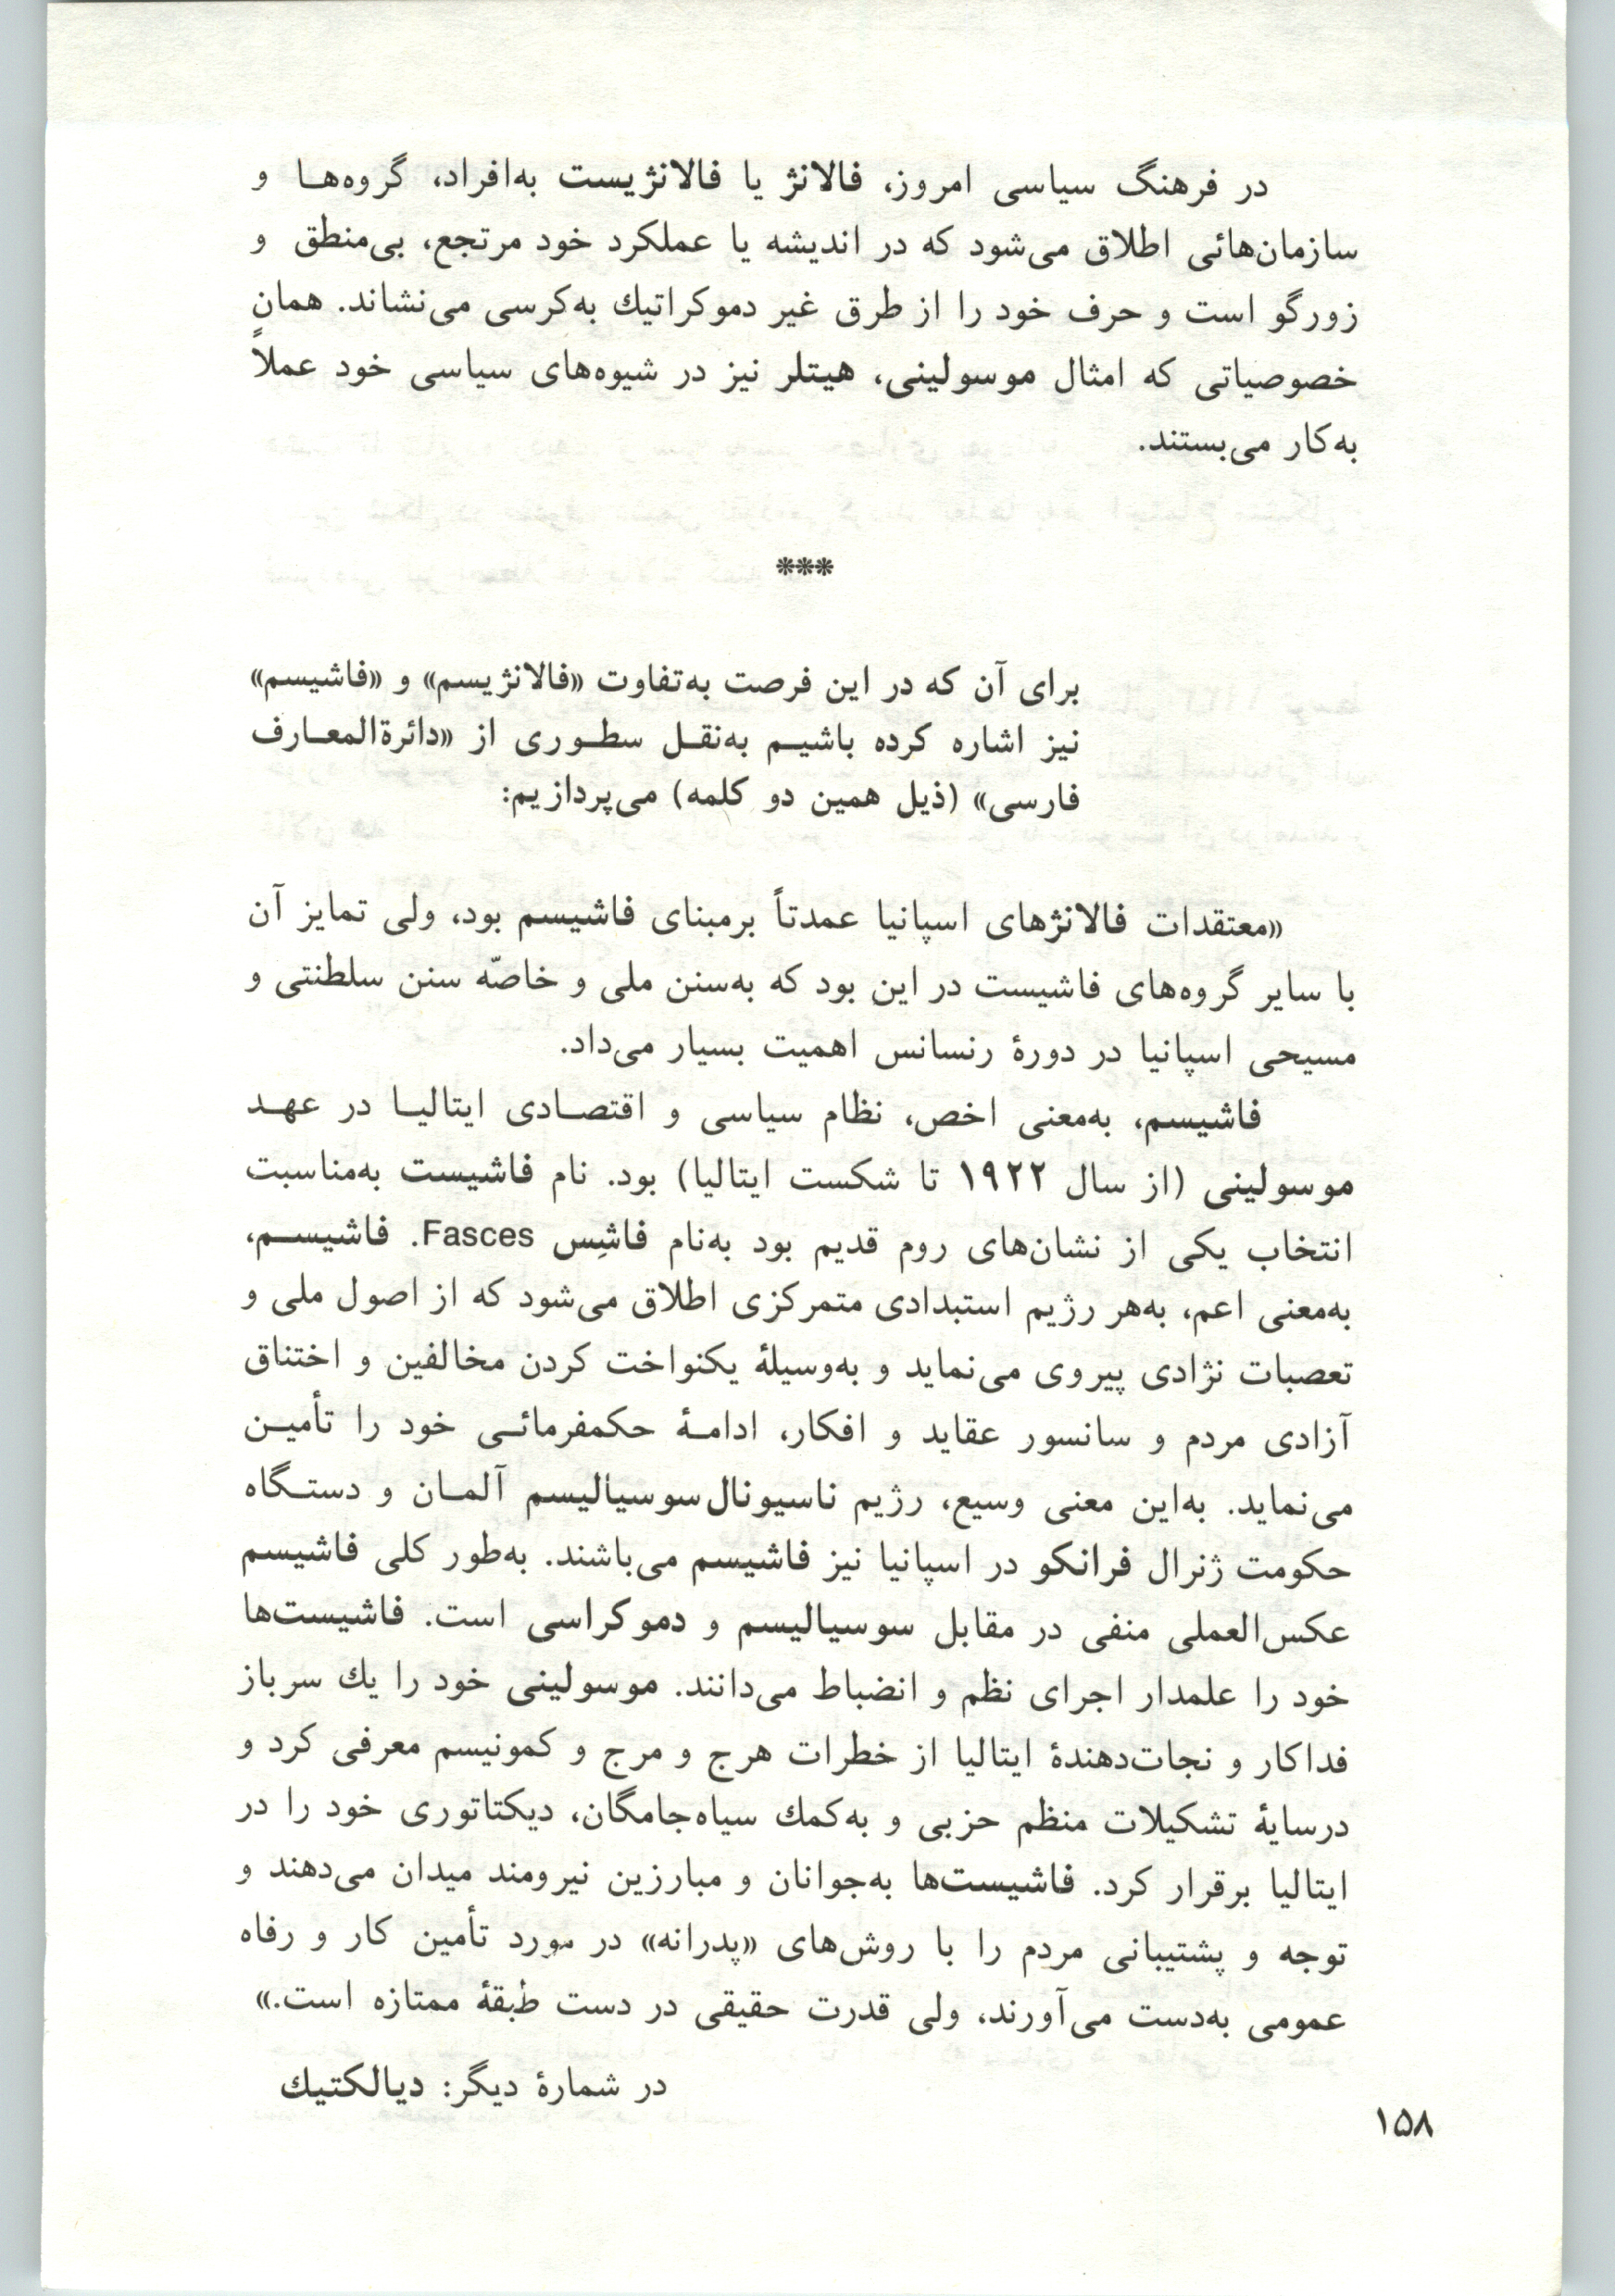 در فرهنگ سیاسی امروز، فالانژ یا فالانژیست به‌افراد، گروه‌ها و
سازمان‌هائی اطلاق می‌شود که در اندیشه یا عملکرد خود مرتجع، بی‌منطق و
زورگو است و حرف خود را از طرق غیر دموکراتیك به‌کرسی می‌نشاند. همان
خصوصیاتی که امثال موسولینی، هیتلر نیز در شیوه‌های سیاسی خود عملاً
به‌کار می‌بستند.
***
برای آن که در این فرصت به‌تفاوت «فالانژیسم» و «فاشیسم»
نیز اشاره کرده باشیم به‌نقل سطوری از «دائرةالمعارف
فارسی» (ذیل همین دو کلمه) می‌پردازیم:
«معتقدات فالانژهای اسپانیا عمدتاً برمبنای فاشیسم بود، ولی تمایز آن
با سایر گروه‌های فاشیست در این بود که به‌سنن ملی و خاصّه سنن سلطنتی و
مسیحی اسپانیا در دورهٔ رنسانس اهمیت بسیار می‌داد.
فاشیسم، به‌معنی اخص، نظام سیاسی و اقتصادی ایتالیا در عهد
موسولینی (از سال ۱۹۲۲ تا شکست ایتالیا) بود. نام فاشیست به‌مناسبت
انتخاب یکی از نشان‌های روم قدیم بود به‌نام فاشِس Fasces. فاشیسم،
به‌معنی اعم، به‌هر رژیم استبدادی متمرکزی اطلاق می‌شود که از اصول ملی و
تعصبات نژادی پیروی می‌نماید و به‌وسیلهٔ یکنواخت کردن مخالفین و اختناق
آزادی مردم و سانسور عقاید و افکار، ادامهٔ حکمفرمائی خود را تأمین
می‌نماید. به‌این معنی وسیع، رژیم ناسیونال‌سوسیالیسم آلمان و دستگاه
حکومت ژنرال فرانکو در اسپانیا نیز فاشیسم می‌باشند. به‌طور کلی فاشیسم
عکس‌العملی منفی در مقابل سوسیالیسم و دموکراسی است. فاشیست‌ها
خود را علمدار اجرای نظم و انضباط می‌دانند. موسولینی خود را یك سرباز
فداکار و نجات‌دهندهٔ ایتالیا از خطرات هرج و مرج و کمونیسم معرفی کرد و
درسایهٔ تشکیلات منظم حزبی و به‌کمك سیاه‌جامگان، دیکتاتوری خود را در
ایتالیا برقرار کرد. فاشیست‌ها به‌جوانان و مبارزین نیرومند میدان می‌دهند و
توجه و پشتیبانی مردم را با روش‌های «پدرانه» در مورد تأمین کار و رفاه
عمومی به‌دست می‌آورند، ولی قدرت حقیقی در دست طبقهٔ ممتازه است.»
در شمارهٔ دیگر: دیالکتیك
۱۵۸